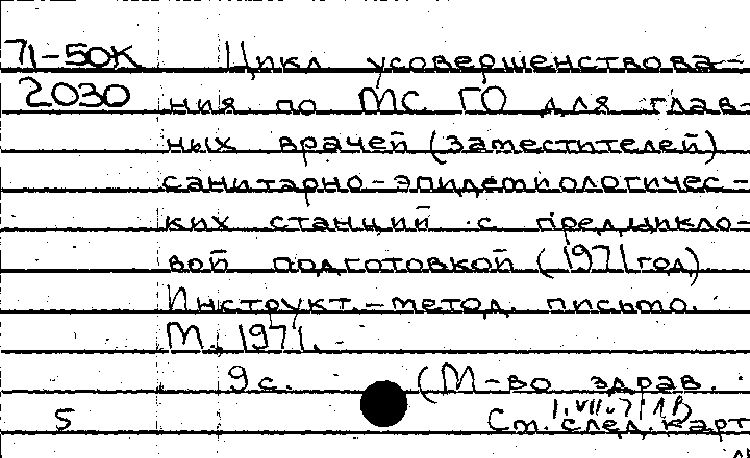 71-50К Цикл усовершенствова-
2030 ния по МС ГО для глав-
ных врачей (заместителей)
санитарно-эпидемиологичес-
ких станций с предцикло-
вой подготовкой (1971 год)
Инструкт.-метод. письмо.
М., 1971.
9 с. (М-во здрав.
5 См. след. карт